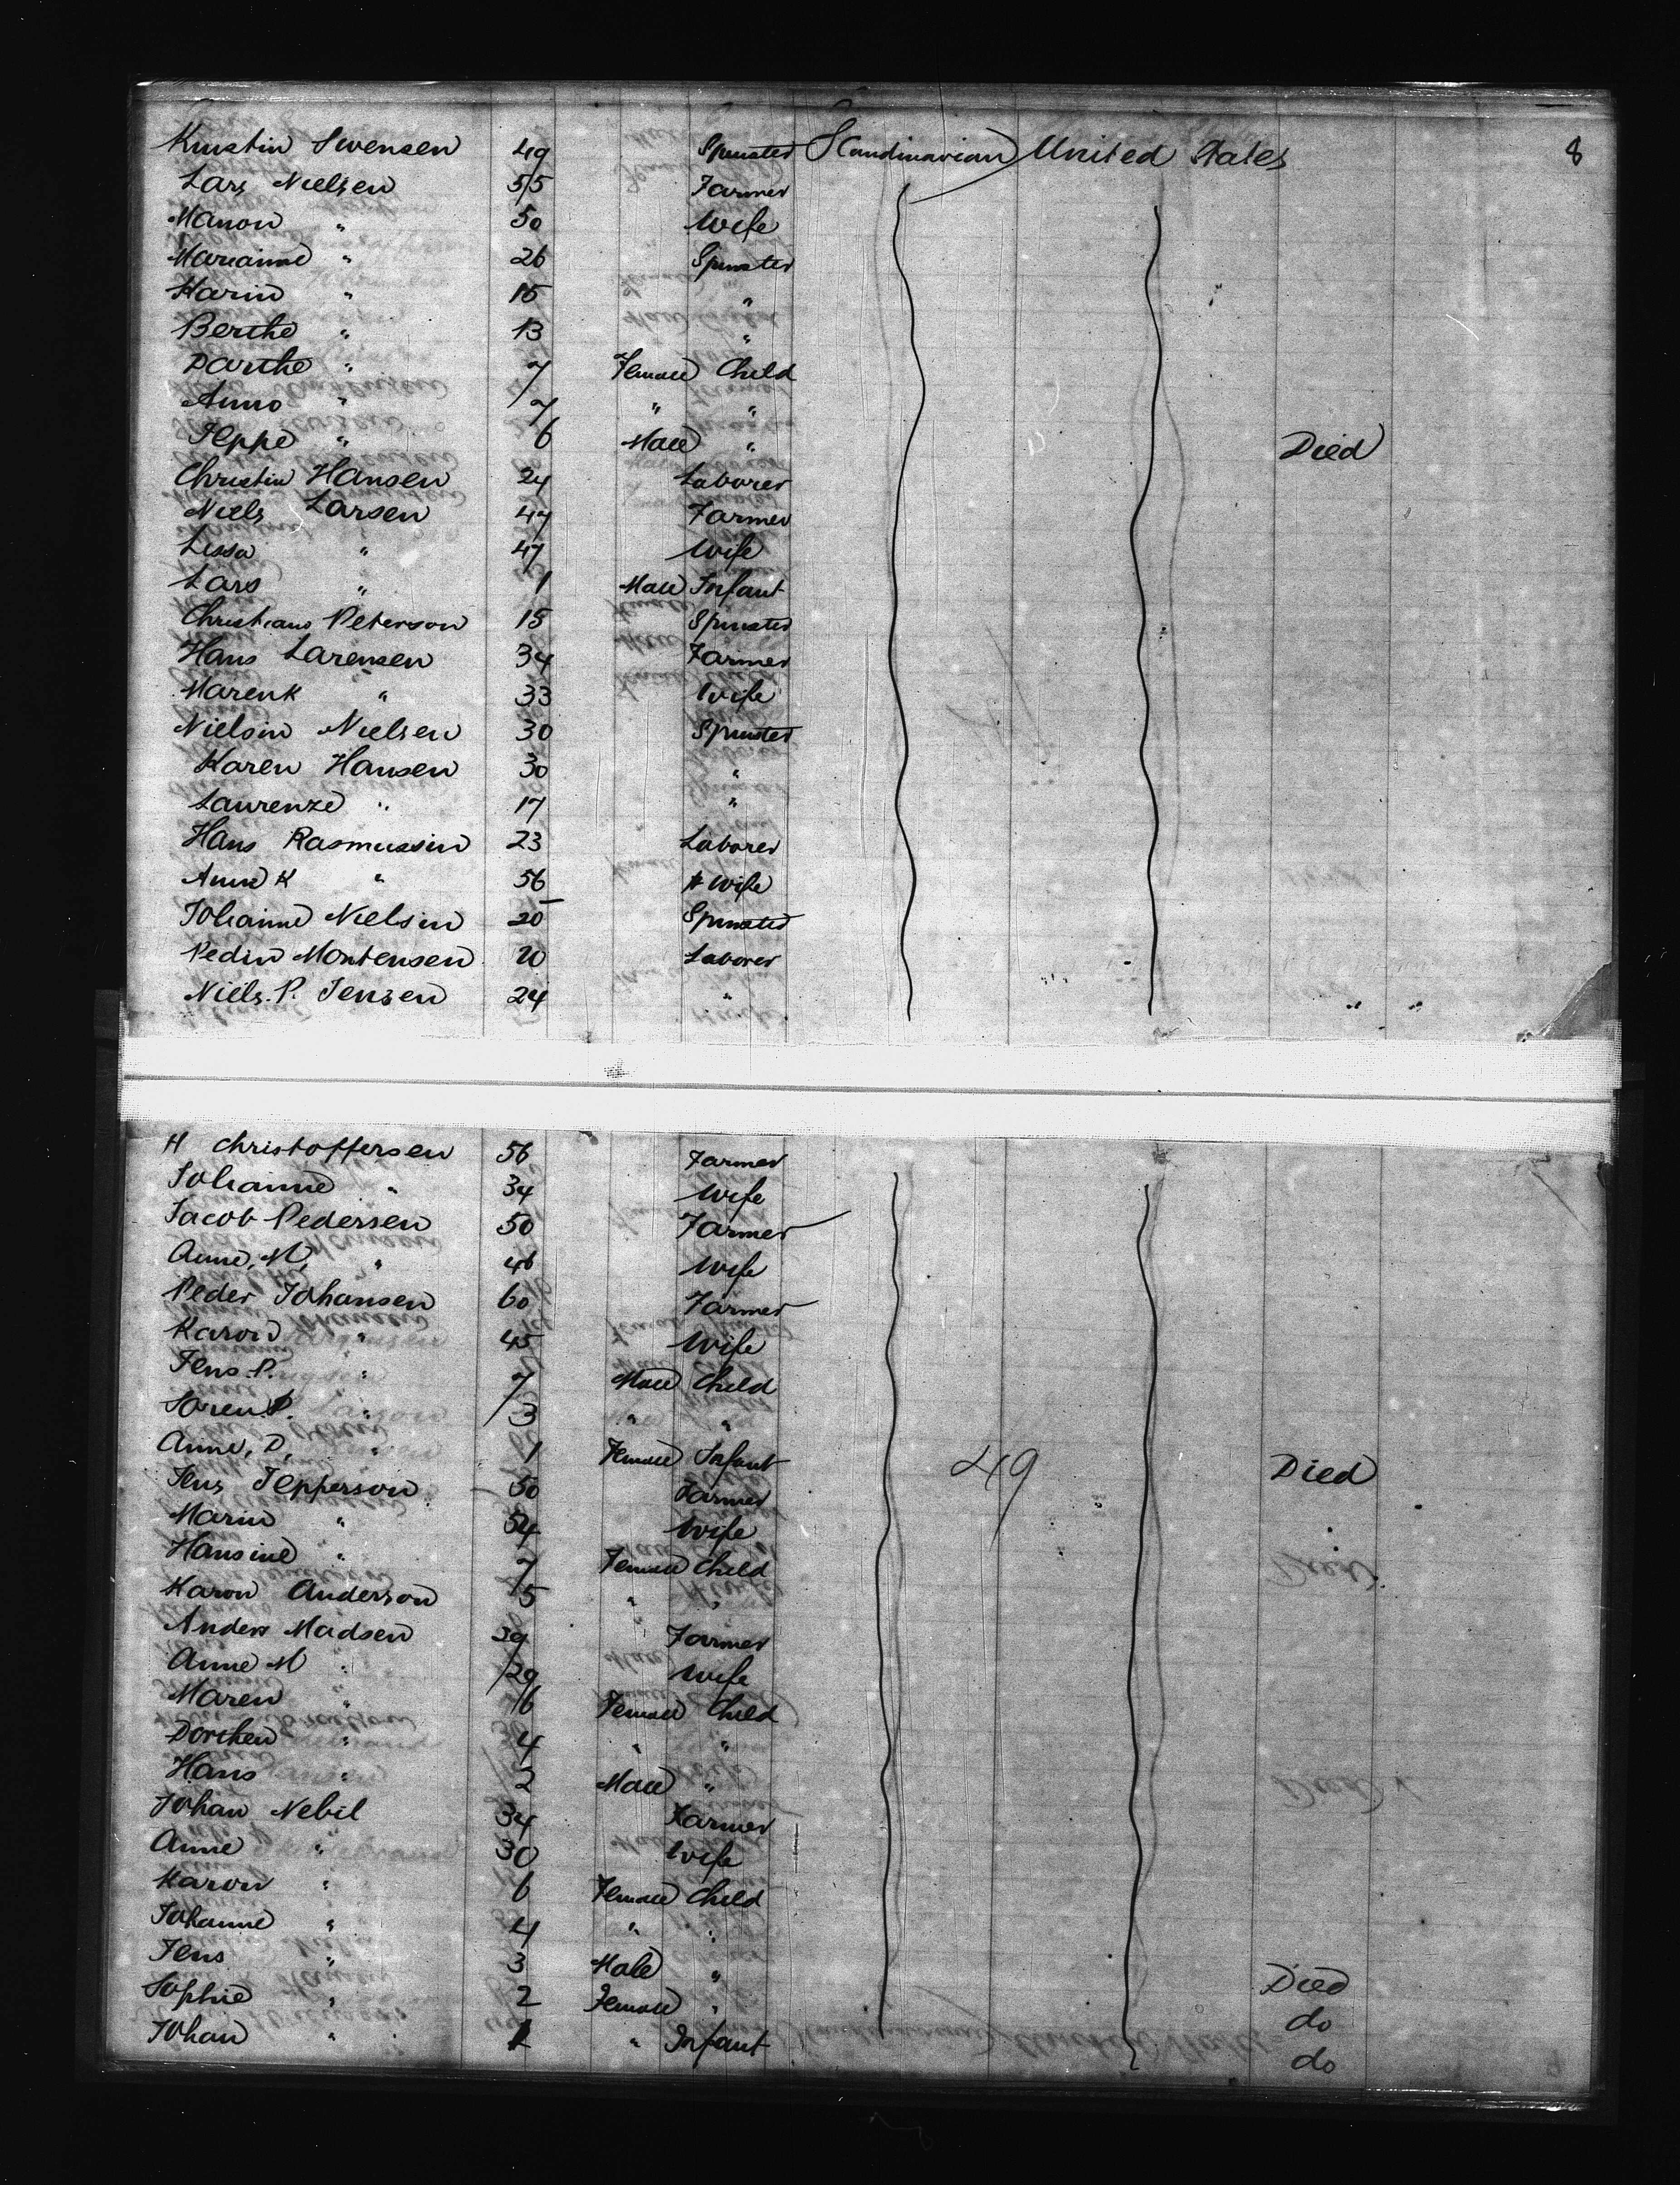 8
Kirstin Swensen 49 Spinster Scandinavian United States
Lars Nielsen 55 Farmer
Manon " 50 Wife
Marianne " 26 Spinster
Karin " 15 "
Berthe " 13 "
Darthe " 7 Female Child
Anno " 7 " "
Jeppe " 6 Male " Died
Christin Hansen 24 Laborer
Niels Larsen 47 Farmer
Lissa " 47 Wife
Lars " 1 Male Infant
Christians Peterson 15 Spinster
Hans Larensen 34 Farmer
Maren K " 33 Wife
Nielsin Nielsen 30 Spinster
Karen Hansen 30 "
Laurenze " 17 "
Hans Rasmussin 23 Laborer
Anne K " 56 Wife
Johanne Nielsin 20 Spinster
Pedin Mortensen 20 Laborer
Niels. P. Jensen 24 "
H Christoffersen 56 Farmer
Johanne " 34 Wife
Jacob Pedersen 50 Farmer
Anne, M, " 46 Wife
Peder Johansen 60 Farmer
Karon " 45 Wife
Jens. P. " 7 Male Child
Soren P. " 3 " "
Anne, D, " 1 Female Infant 49 Died
Jens Jepperson 50 Farmer
Marin " 54 Wife
Hansine " 7 Female Child
Karon Anderson 5 " "
Anders Madsen 39 Farmer
Anne M " 29 Wife
Maren " 6 Female Child
Dorthen " 4 " "
Hans " 2 Male "
Johan Nebil 34 Farmer
Anne " 30 Wife
Karon " 6 Female Child
Johanne " 4 " "
Jens " 3 Male " Died
Sophie " 2 Female " do
Johan " 1 " Infant do